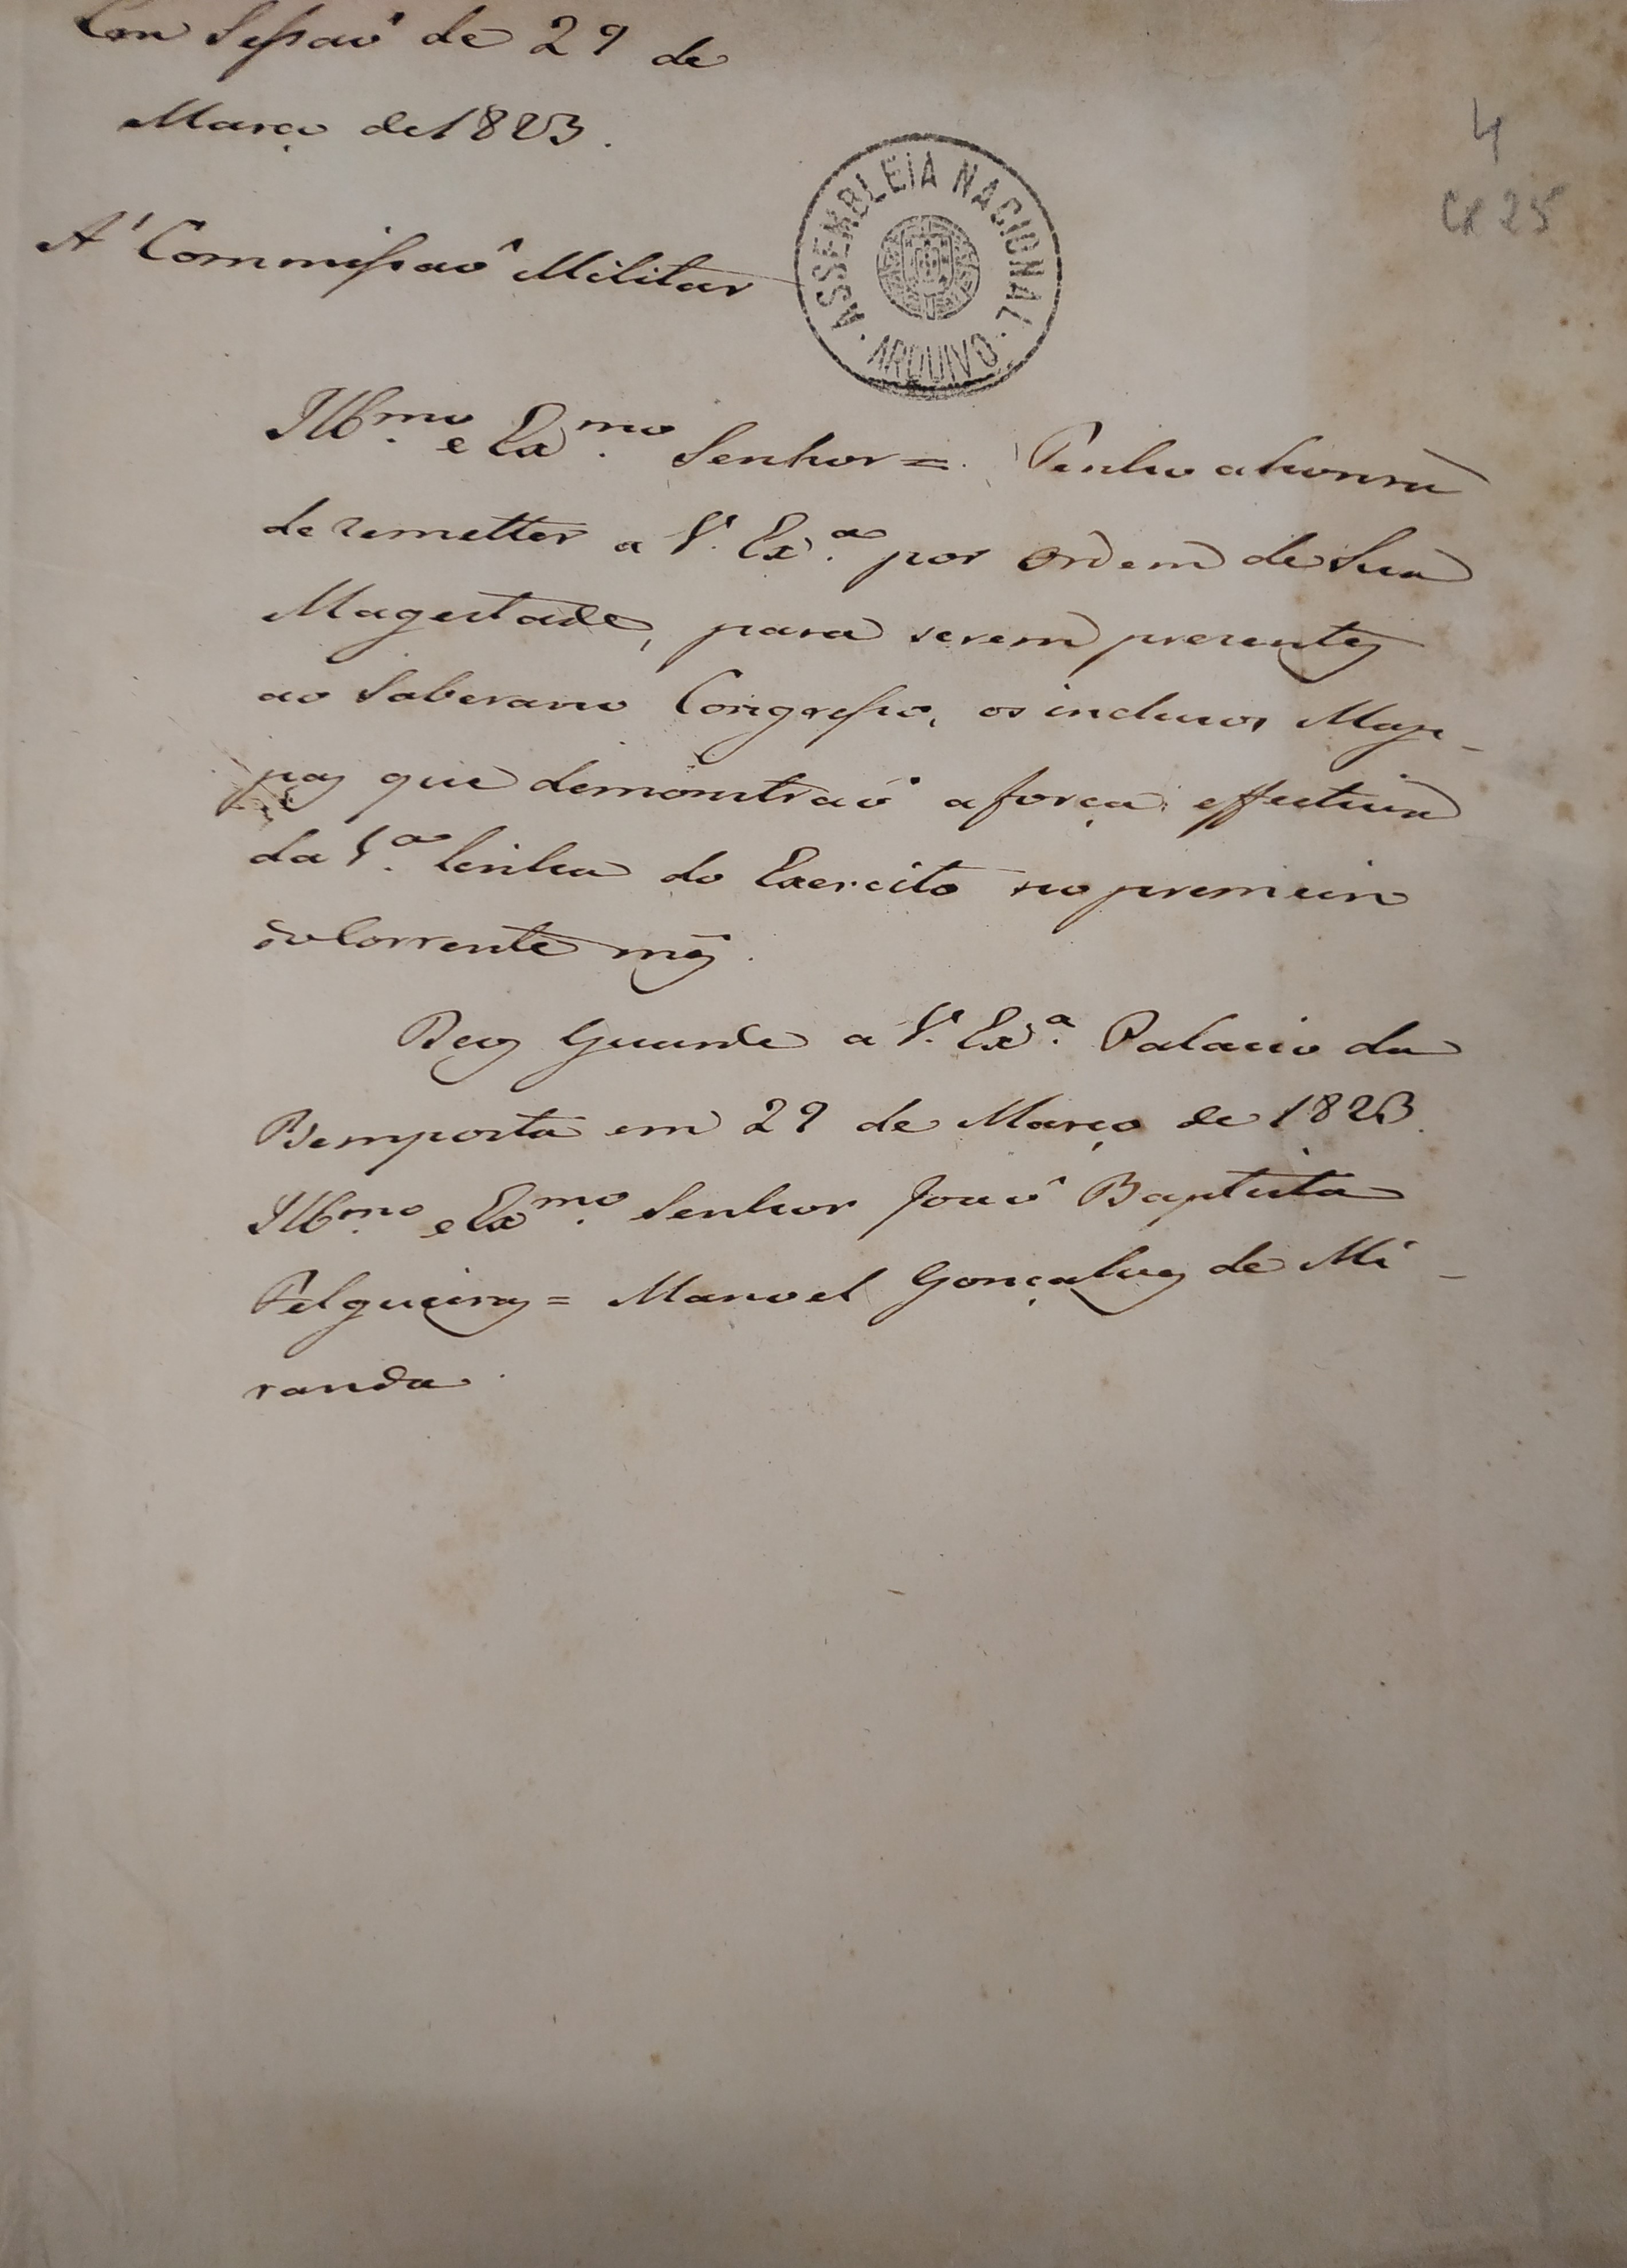 Em Sessaõ de 29 de
Março de 1823.
4
Cx 25
A' Commissaõ Militar
ASSEMBLEIA NACIONAL
· ARQUIVO ·
Ill.mo e Ex.mo Senhor = Tenho a honra
de remetter a V. Ex.a por ordem de Sua
Magestade, para serem prezentes
ao Soberano Congresso, os inclusos Map-
pas que demonstraõ a força effectiva
da 1.a linha do Exercito no primeiro
do Corrente mês.
Deos Guarde a V. Ex.a Palacio da
Bemposta em 29 de Março de 1823.
Ill.mo e Ex.mo Senhor Joaõ Baptista
Felgueiras = Manoel Gonçalves de Mi-
randa.